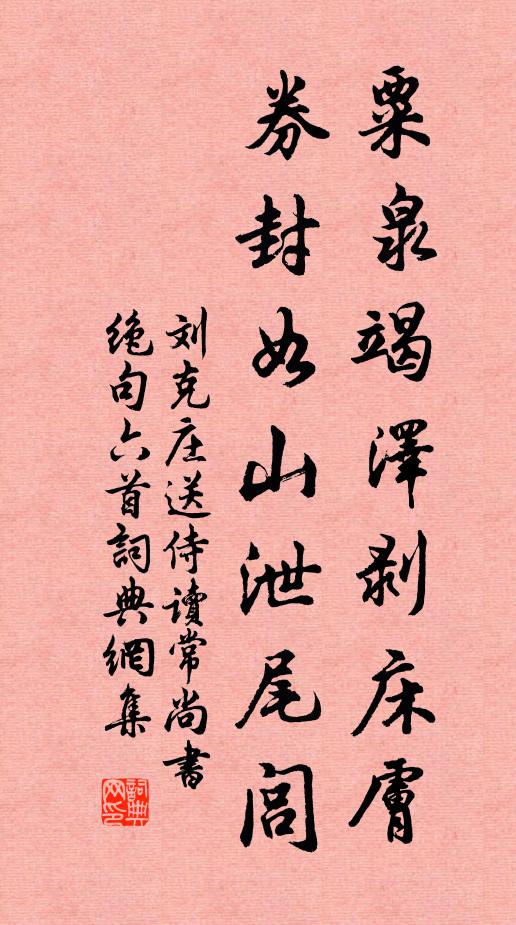 粟泉竭澤剥床膚
券封如山泄尾閭
刘克庄送侍讀常尚書
绝句六首詞典網集
詞典網印